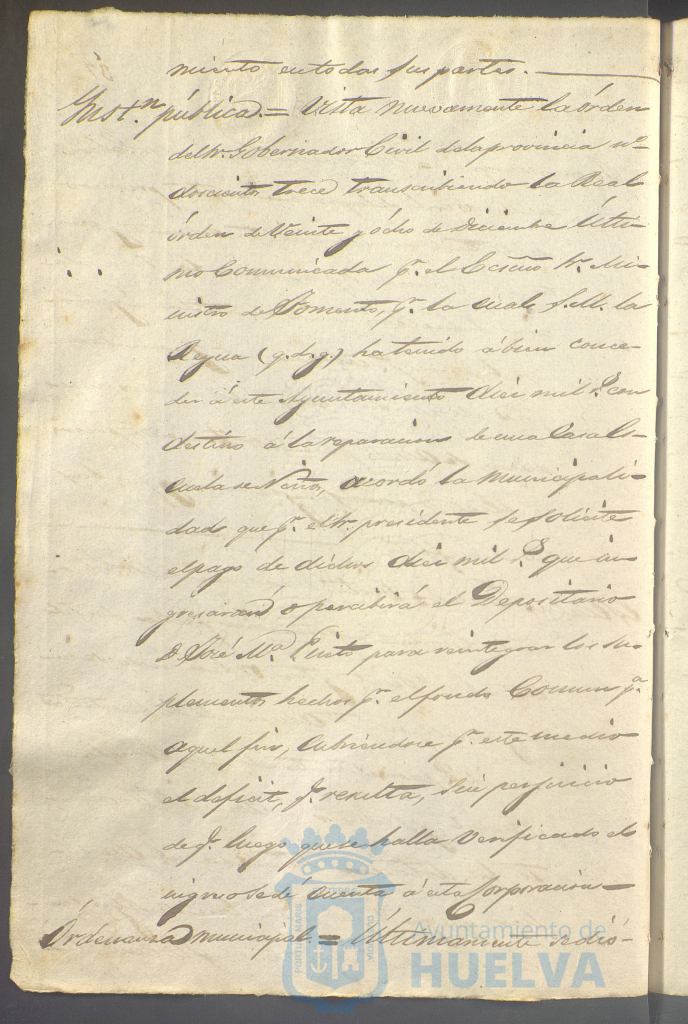 miento en todas sus partes.
Inst.n pública = Vista nuevamente la órden
del Sr. Gobernador Civil de la provincia nº
doscientos trece transcribiendo la Real
órden de Veinte y ócho de Diciembre Últi-
mo Comunicada p.r el Escmo Sr. Mi-
nistro de Fomento, p.r la cual S.M. la
Reyna (q.d.g.) ha tenido á bien conce-
der á este Ayuntamiento diez mil r.s con
destino á la reparacion de una Casa Es-
cuela de Niños, acordó la Municipali-
dad que p.r el Sr. presidente se solicite
el pago de dichos diez mil r.s que in-
gresará ó percibirá el Depositario
D José M.a Prieto para reintegrar los su-
plementos hechos p.r el fondo Comun p.a
aquel fin, cubriendose p.r este medio
el deficit, q. resulta, sin perjuicio
de q. luego que se halla Verificado el
ingreso se dé cuenta á esta Corporacion
Órdenanza municipal = Últimamente se dió
Ayuntamiento de
HUELVA